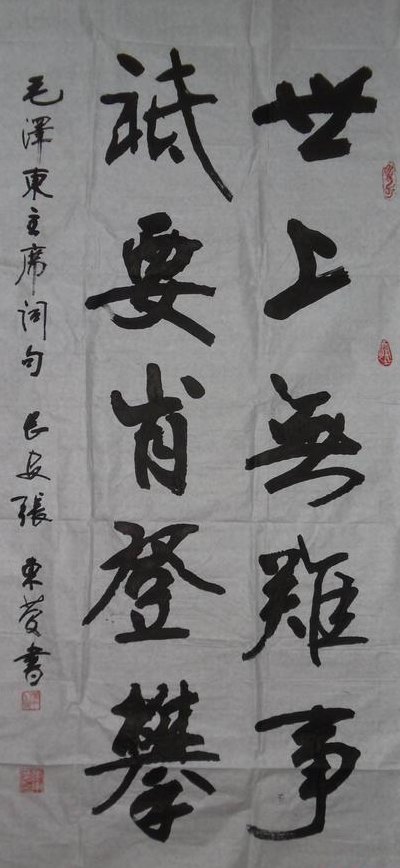 世上無難事
祇要肯登攀
毛澤東主席詞句 長安張東黌書